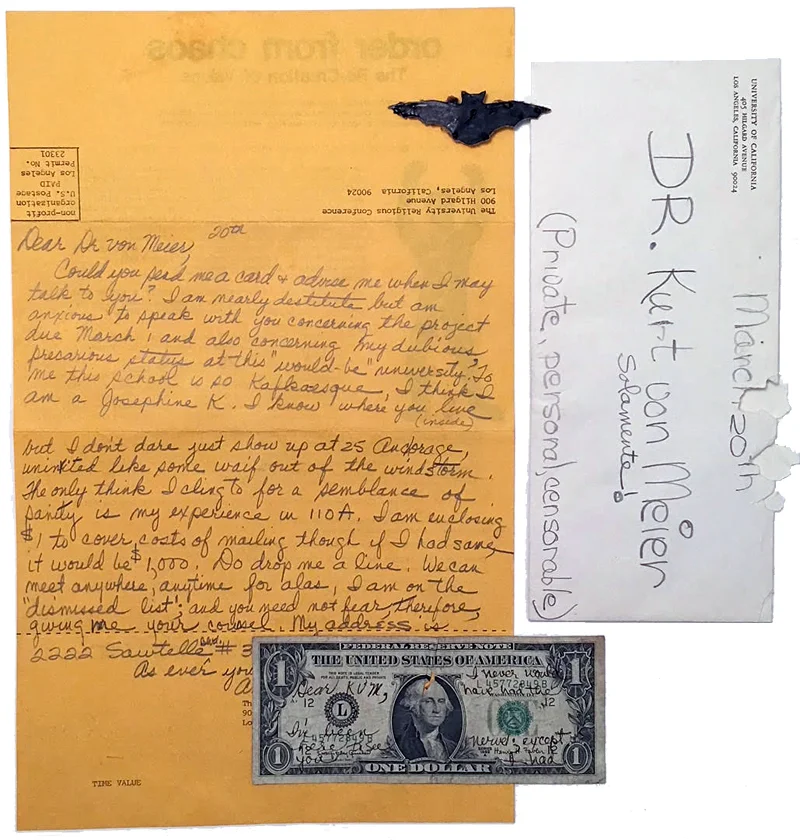 order from chaos
The Re-Creation of Values
non-profit
organization
U.S. Postage
PAID
Los Angeles
Permit No.
23301
The University Religious Conference
900 Hilgard Avenue
Los Angeles, California 90024
20th
Dear Dr von Meier,
Could you send me a card & advise me when I may
talk to you? I am nearly destitute but am
anxious to speak with you concerning the project
due March 1 and also concerning my dubious,
precarious status at this "would-be" university. To
me this school is so Kafkaesque, I think I
am a Josephine K. I know where you live
(inside)
but I don't dare just show up at 25 Anchorage,
uninvited like some waif out of the windstorm.
The only think I cling to for a semblance of
sanity is my experience in 110A. I am enclosing
$1 to cover costs of mailing though if I had same
it would be $1,000. Do drop me a line. We can
meet anywhere, anytime for alas, I am on the
"dismissed list", and you need not fear, therefore,
giving me your counsel. My address is
2222 Sawtelle Blvd. # 3
As ever you
TIME VALUE
UNIVERSITY OF CALIFORNIA
405 HILGARD AVENUE
LOS ANGELES, CALIFORNIA 90024
March 20th
DR. Kurt von Meier
Solamente!
(Private, personal, censorable)
FEDERAL RESERVE NOTE
THE UNITED STATES OF AMERICA
THIS NOTE IS LEGAL TENDER
FOR ALL DEBTS, PUBLIC AND PRIVATE
L 45772849 B
L 45772849 B
1 1
1 1
12 12
12 12
L
Dear KVM,
I never would
have had the
nerve except
I had
ONE DOLLAR